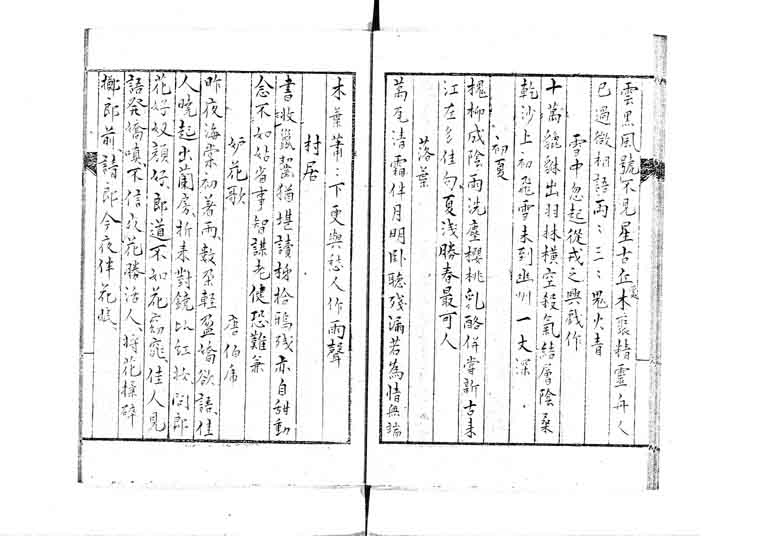 雲黒風號不見星古丘木裏精靈舟人
已過微相語兩〻三〻鬼火青
雪中忽起從戎之興戲作
十萬貔貅出羽林橫空殺氣結層陰桑
乾沙上初飛雪未到幽州一丈深
初夏
槐柳成陰雨洗塵櫻桃乳酪併嘗新古来
江左多佳句夏淺勝春最可人
落葉
萬瓦清霜伴月明臥聽殘漏若為情無端
木葉蕭〻下更與愁人作雨聲
村居
書墩猶堪讀拾殘亦自甜動
念不如姑省事智謀老健恐難兼
妒花歌
唐伯虎
昨夜海棠初着雨數朵輕盈嬌欲語佳
人曉起出蘭房折来對鏡比紅粧問郎
花好奴顏好郎道不如花窈窕佳人見
語發嬌嗔不信死花勝活人將花揉碎
擲郎前請郎今夜伴花眠